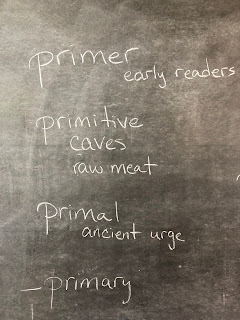 primer
early readers
primitive
caves
raw meat
primal
ancient urge
– primary